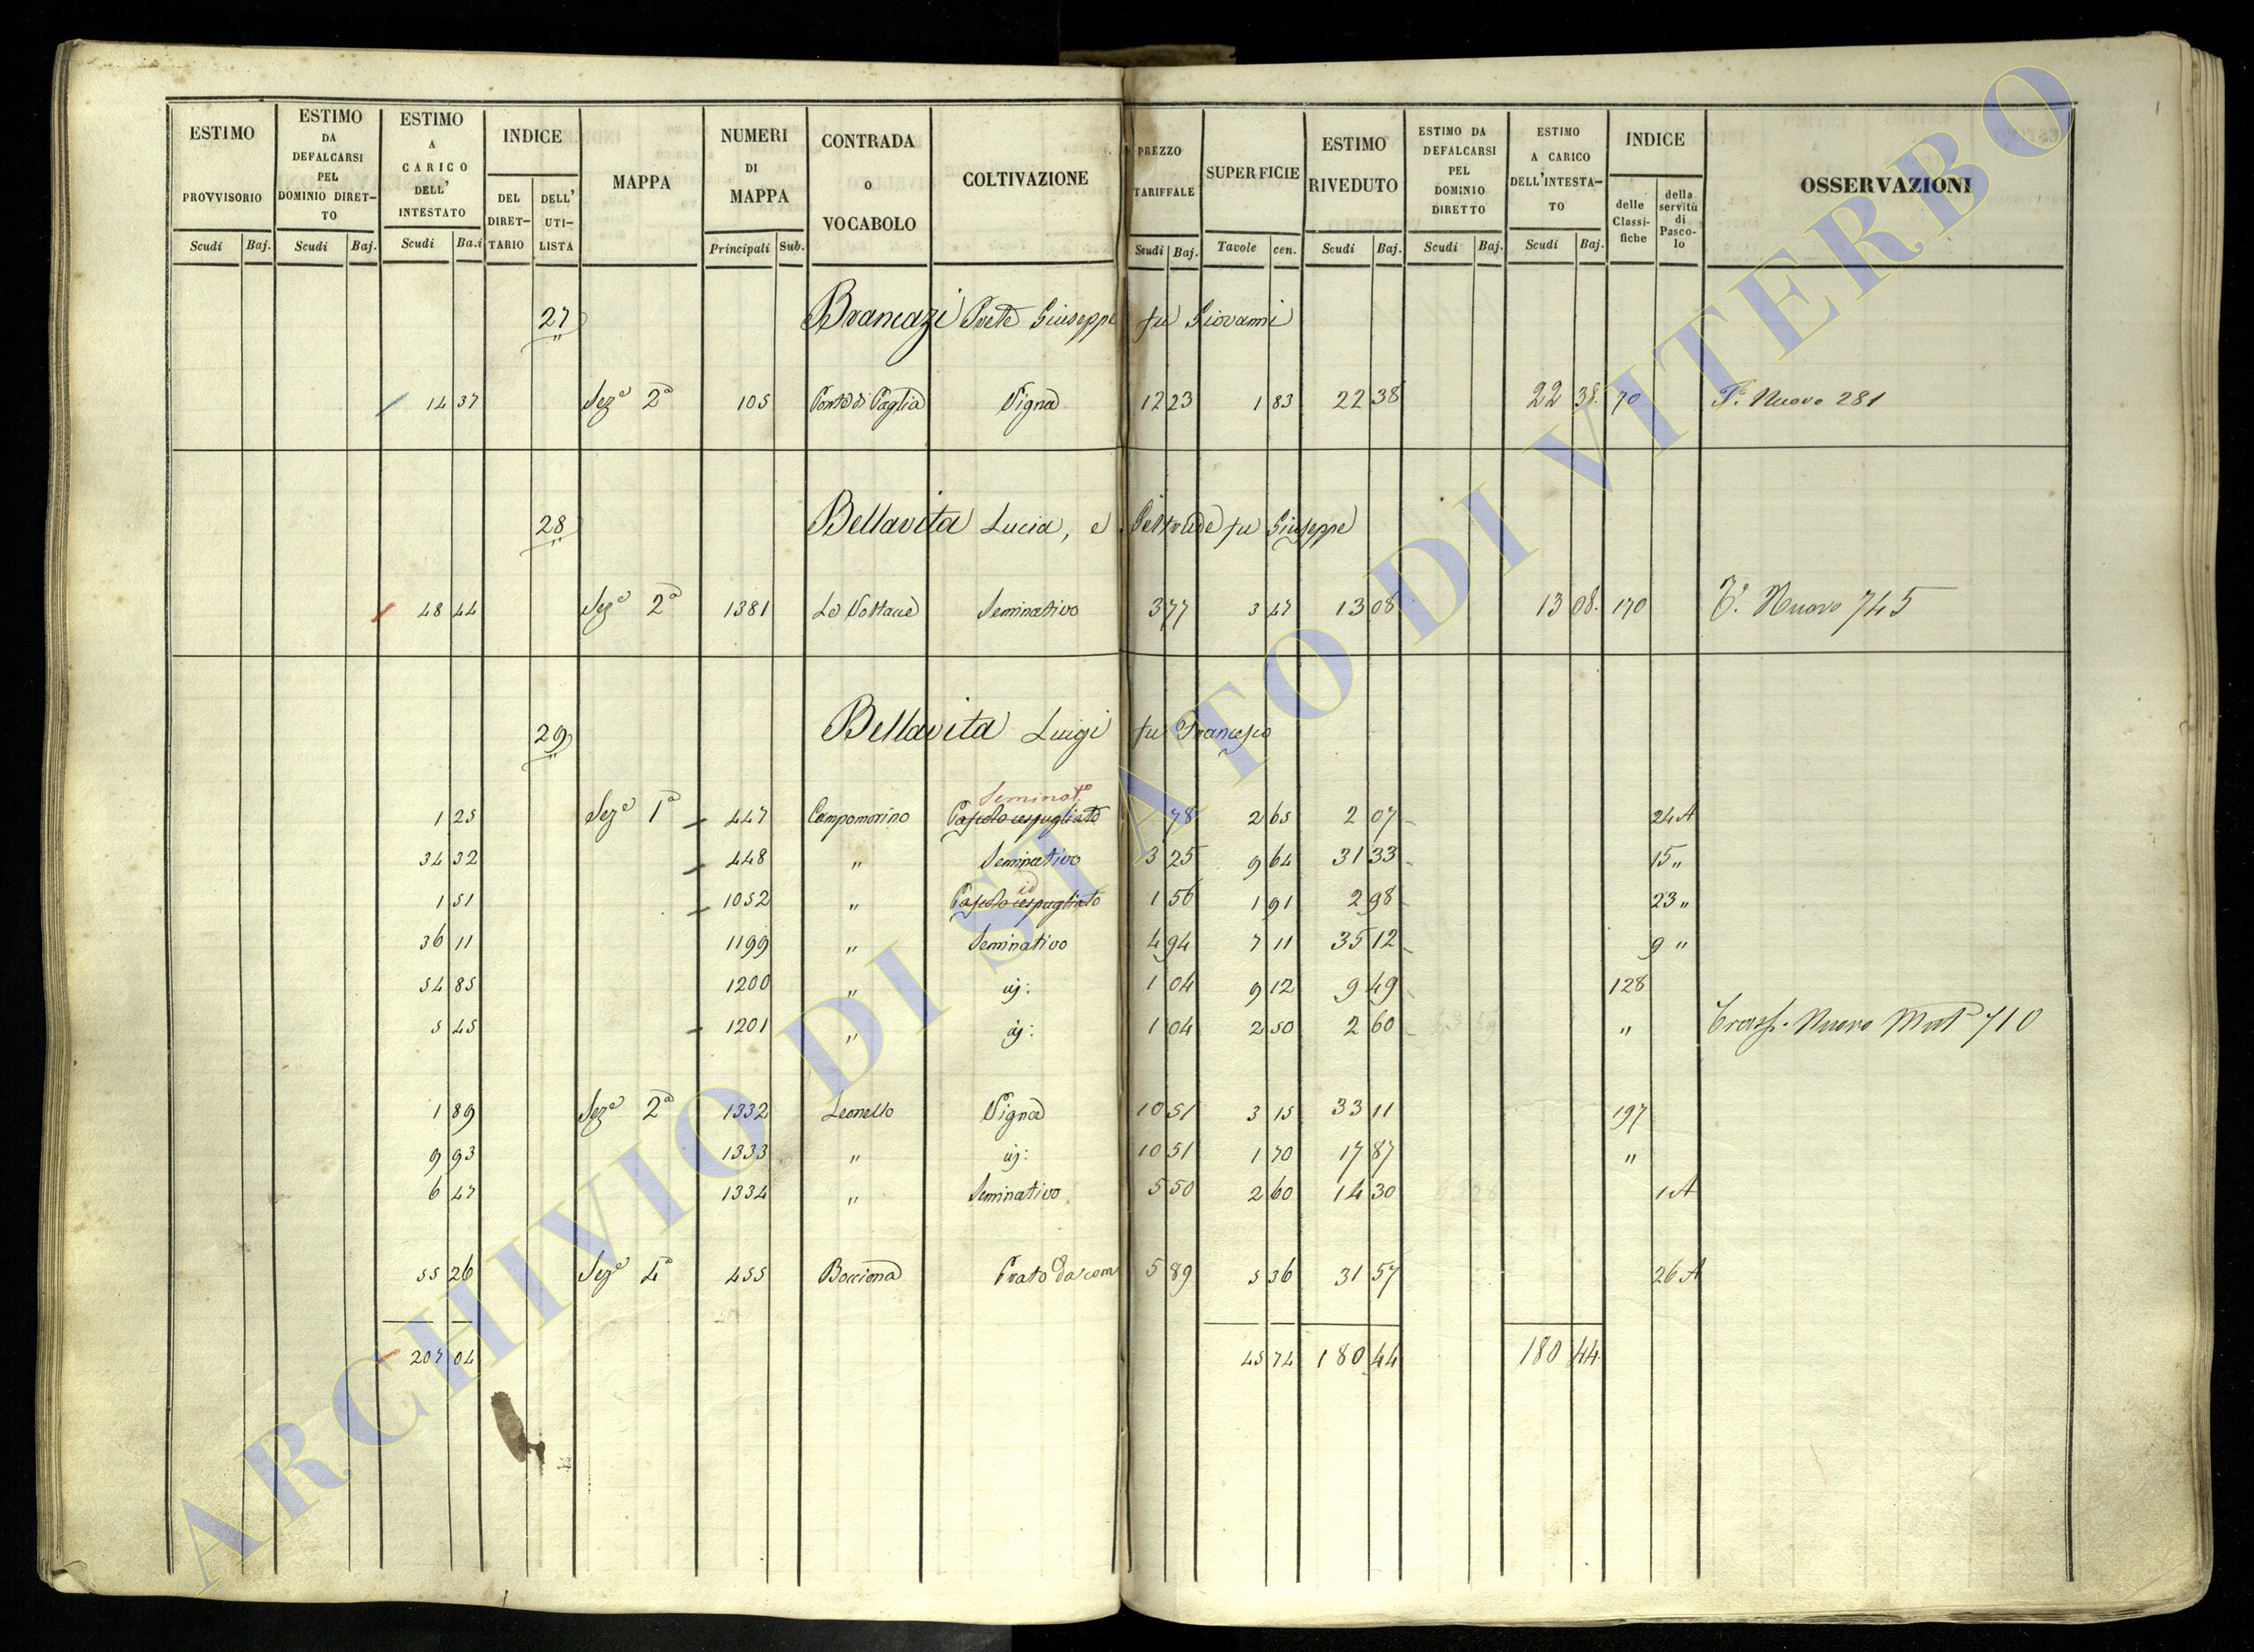 ESTIMO PROVVISORIO
ESTIMO DA DEFALCARSI PEL DOMINIO DIRET-TO
ESTIMO A CARICO DELL' INTESTATO
INDICE
DEL DIRET-TARIO
DELL' UTI-LISTA
MAPPA
NUMERI DI MAPPA
CONTRADA O VOCABOLO
COLTIVAZIONE
PREZZO TARIFFALE
SUPERFICIE
ESTIMO RIVEDUTO
ESTIMO DA DEFALCARSI PEL DOMINIO DIRETTO
ESTIMO A CARICO DELL'INTESTA-TO
INDICE
delle Classi-fiche
della servitù di Pasco-lo
OSSERVAZIONI
Scudi Baj. Scudi Baj. Scudi Ba.i Principali Sub. Scudi Baj. Tavole cen. Scudi Baj. Scudi Baj. Scudi Baj.
27 Brancazi Prete Giuseppe fu Giovanni
14 37 Seze 2a 105 Ponte di Paglia Vigna 12 23 1 83 22 38 22 38. 70 T. Nuovo 281
28 Bellavita Lucia, e Geltrude fu Giuseppe
48 44 Seze 2a 1381 Seminativo 3 77 3 47 13 08 13 08. 170 To. Nuovo 745
29 Bellavita Luigi fu Francesco
Seminato
1 25 Seze 1a 447 Campomorino Pascolo cespugliato 78 2 65 2 07 24 A
34 32 448 " Seminativo 3 25 9 64 31 33 15 "
id
1 51 1052 " Pascolo cespugliato 1 56 1 91 2 98 23 "
36 11 1199 " Seminativo 4 94 7 11 35 12 9 "
54 85 1200 " id: 1 04 9 12 9 49 128
5 45 1201 " id: 1 04 2 50 2 60 " Trasf. Nuovo Mat 710
1 89 Seze 2a 1332 Leonello Vigna 10 51 3 15 33 11 197
9 93 1333 " id: 10 51 1 70 17 87 "
6 47 1334 " Seminativo 5 50 2 60 14 30 1 A
55 26 Seze 4a 455 Bocciona Prato 5 89 5 36 31 57 26 A
207 04 45 74 180 44 180 44.
ARCHIVIO DI STATO DI VITERBO